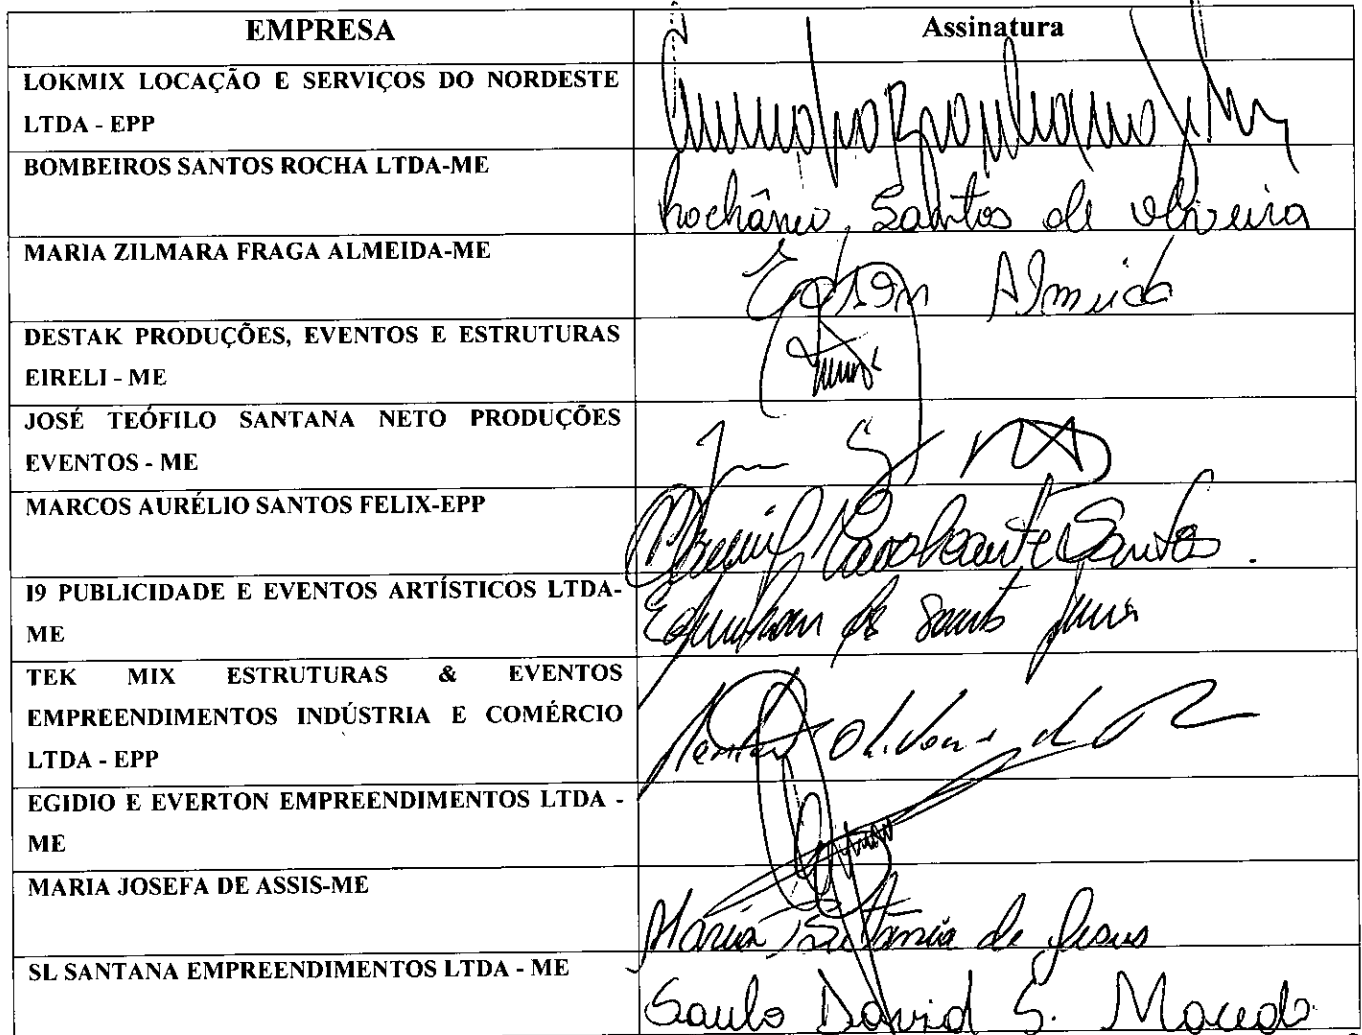 EMPRESA Assinatura
LOKMIX LOCAÇÃO E SERVIÇOS DO NORDESTE
LTDA - EPP
BOMBEIROS SANTOS ROCHA LTDA-ME
Santos de Oliveira
MARIA ZILMARA FRAGA ALMEIDA-ME
Edson Almeida
DESTAK PRODUÇÕES, EVENTOS E ESTRUTURAS
EIRELI - ME
JOSÉ TEÓFILO SANTANA NETO PRODUÇÕES
EVENTOS - ME
MARCOS AURÉLIO SANTOS FELIX-EPP
Cavalcante Santos.
I9 PUBLICIDADE E EVENTOS ARTÍSTICOS LTDA-
ME
TEK MIX ESTRUTURAS & EVENTOS
EMPREENDIMENTOS INDÚSTRIA E COMÉRCIO
LTDA - EPP
EGIDIO E EVERTON EMPREENDIMENTOS LTDA -
ME
MARIA JOSEFA DE ASSIS-ME
Maria de Jesus
SL SANTANA EMPREENDIMENTOS LTDA - ME
Saulo David S. Macedo